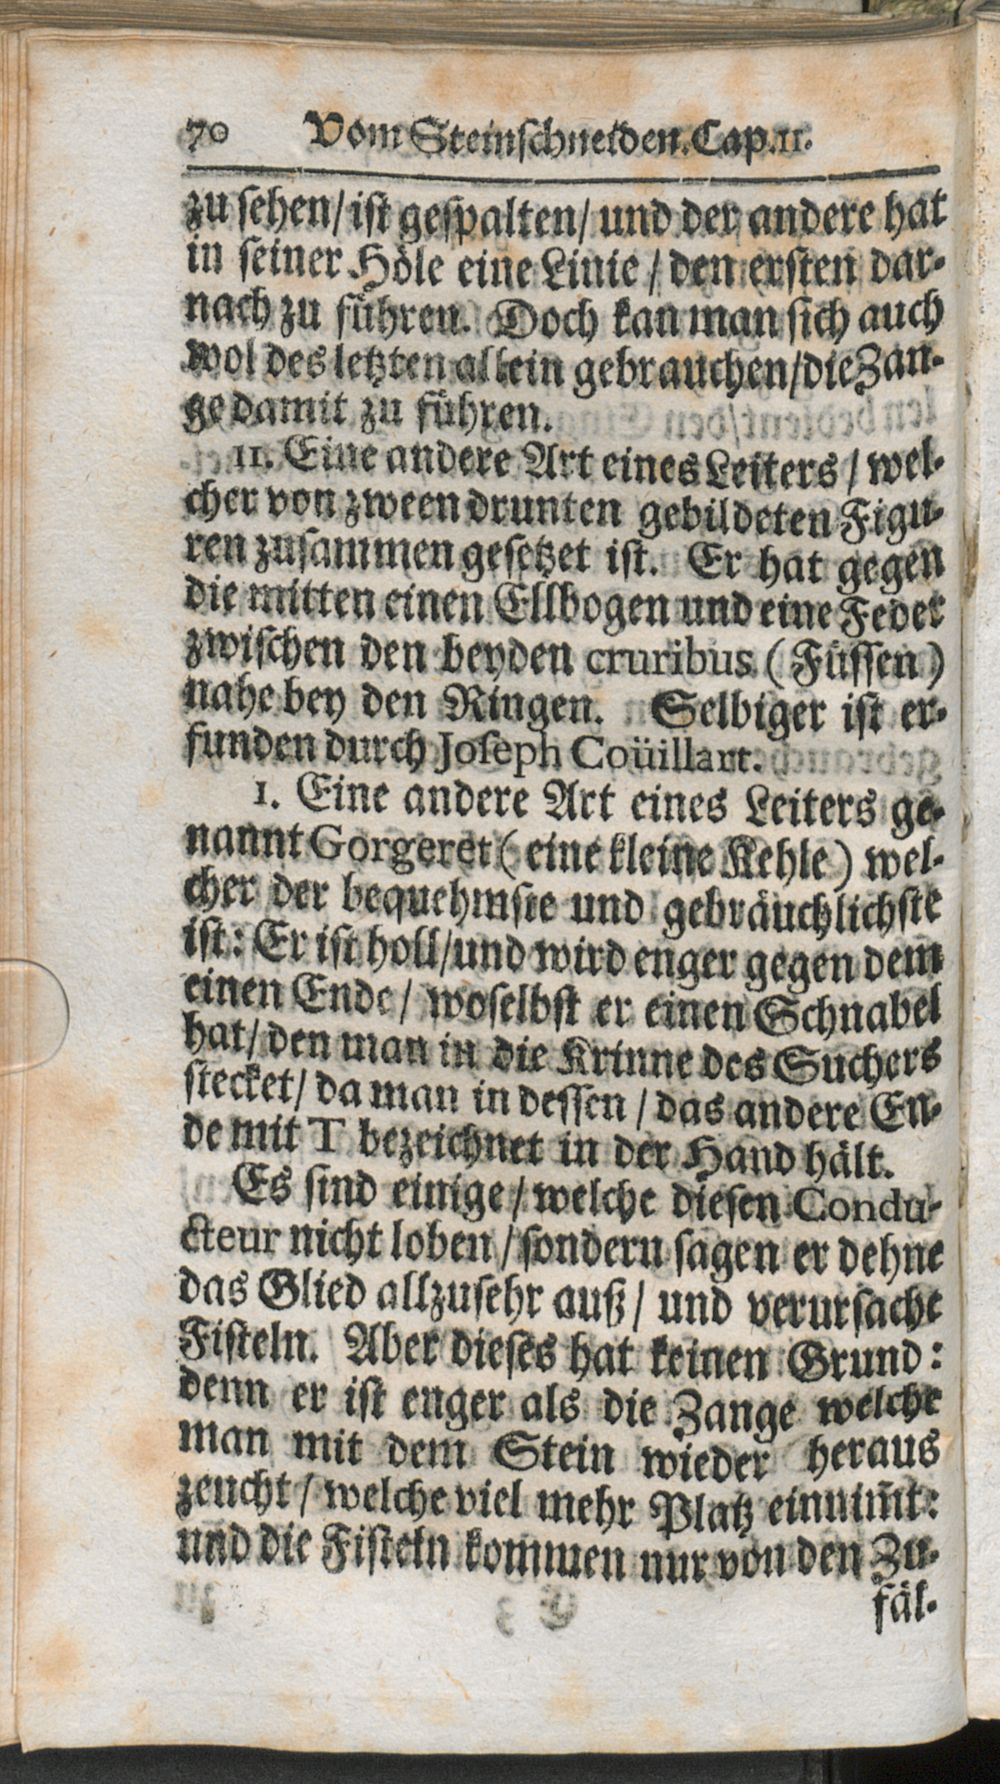 70 Vom Steinschneiden. Cap. 11.
zu sehen / ist gespalten / und der andere hat
in seiner Höle eine Linie / den ersten dar-
nach zu führen. Doch kan man sich auch
wol des letzten allein gebrauchen / die Zan-
ge damit zu führen.
11. Eine andere Art eines Leiters / wel-
cher von zween drunten gebildeten Figu-
ren zusammen gesetzet ist. Er hat gegen
die mitten einen Ellbogen und eine Feder
zwischen den beyden cruribus (Füssen)
nahe bey den Ringen. Selbiger ist er-
funden durch Joseph Coüillart.
1. Eine andere Art eines Leiters ge-
nannt Gorgeret (eine kleine Kehle) wel-
cher der bequehmste und gebräuchlichste
ist: Er ist holl / und wird enger gegen dem
einen Ende / woselbst er einen Schnabel
hat / den man in die Krinne des Suchers
stecket / da man in dessen / das andere En-
de mit T bezeichnet in der Hand hält.
Es sind einige / welche diesen Condu-
cteur nicht loben / sondern sagen er dehne
das Glied allzusehr auß / und verursache
Fisteln. Aber dieses hat keinen Grund:
denn er ist enger als die Zange welche
man mit dem Stein wieder heraus
zeucht / welche viel mehr Platz einnim̄t:
und die Fisteln kommen nur von den Zu-
fäl-